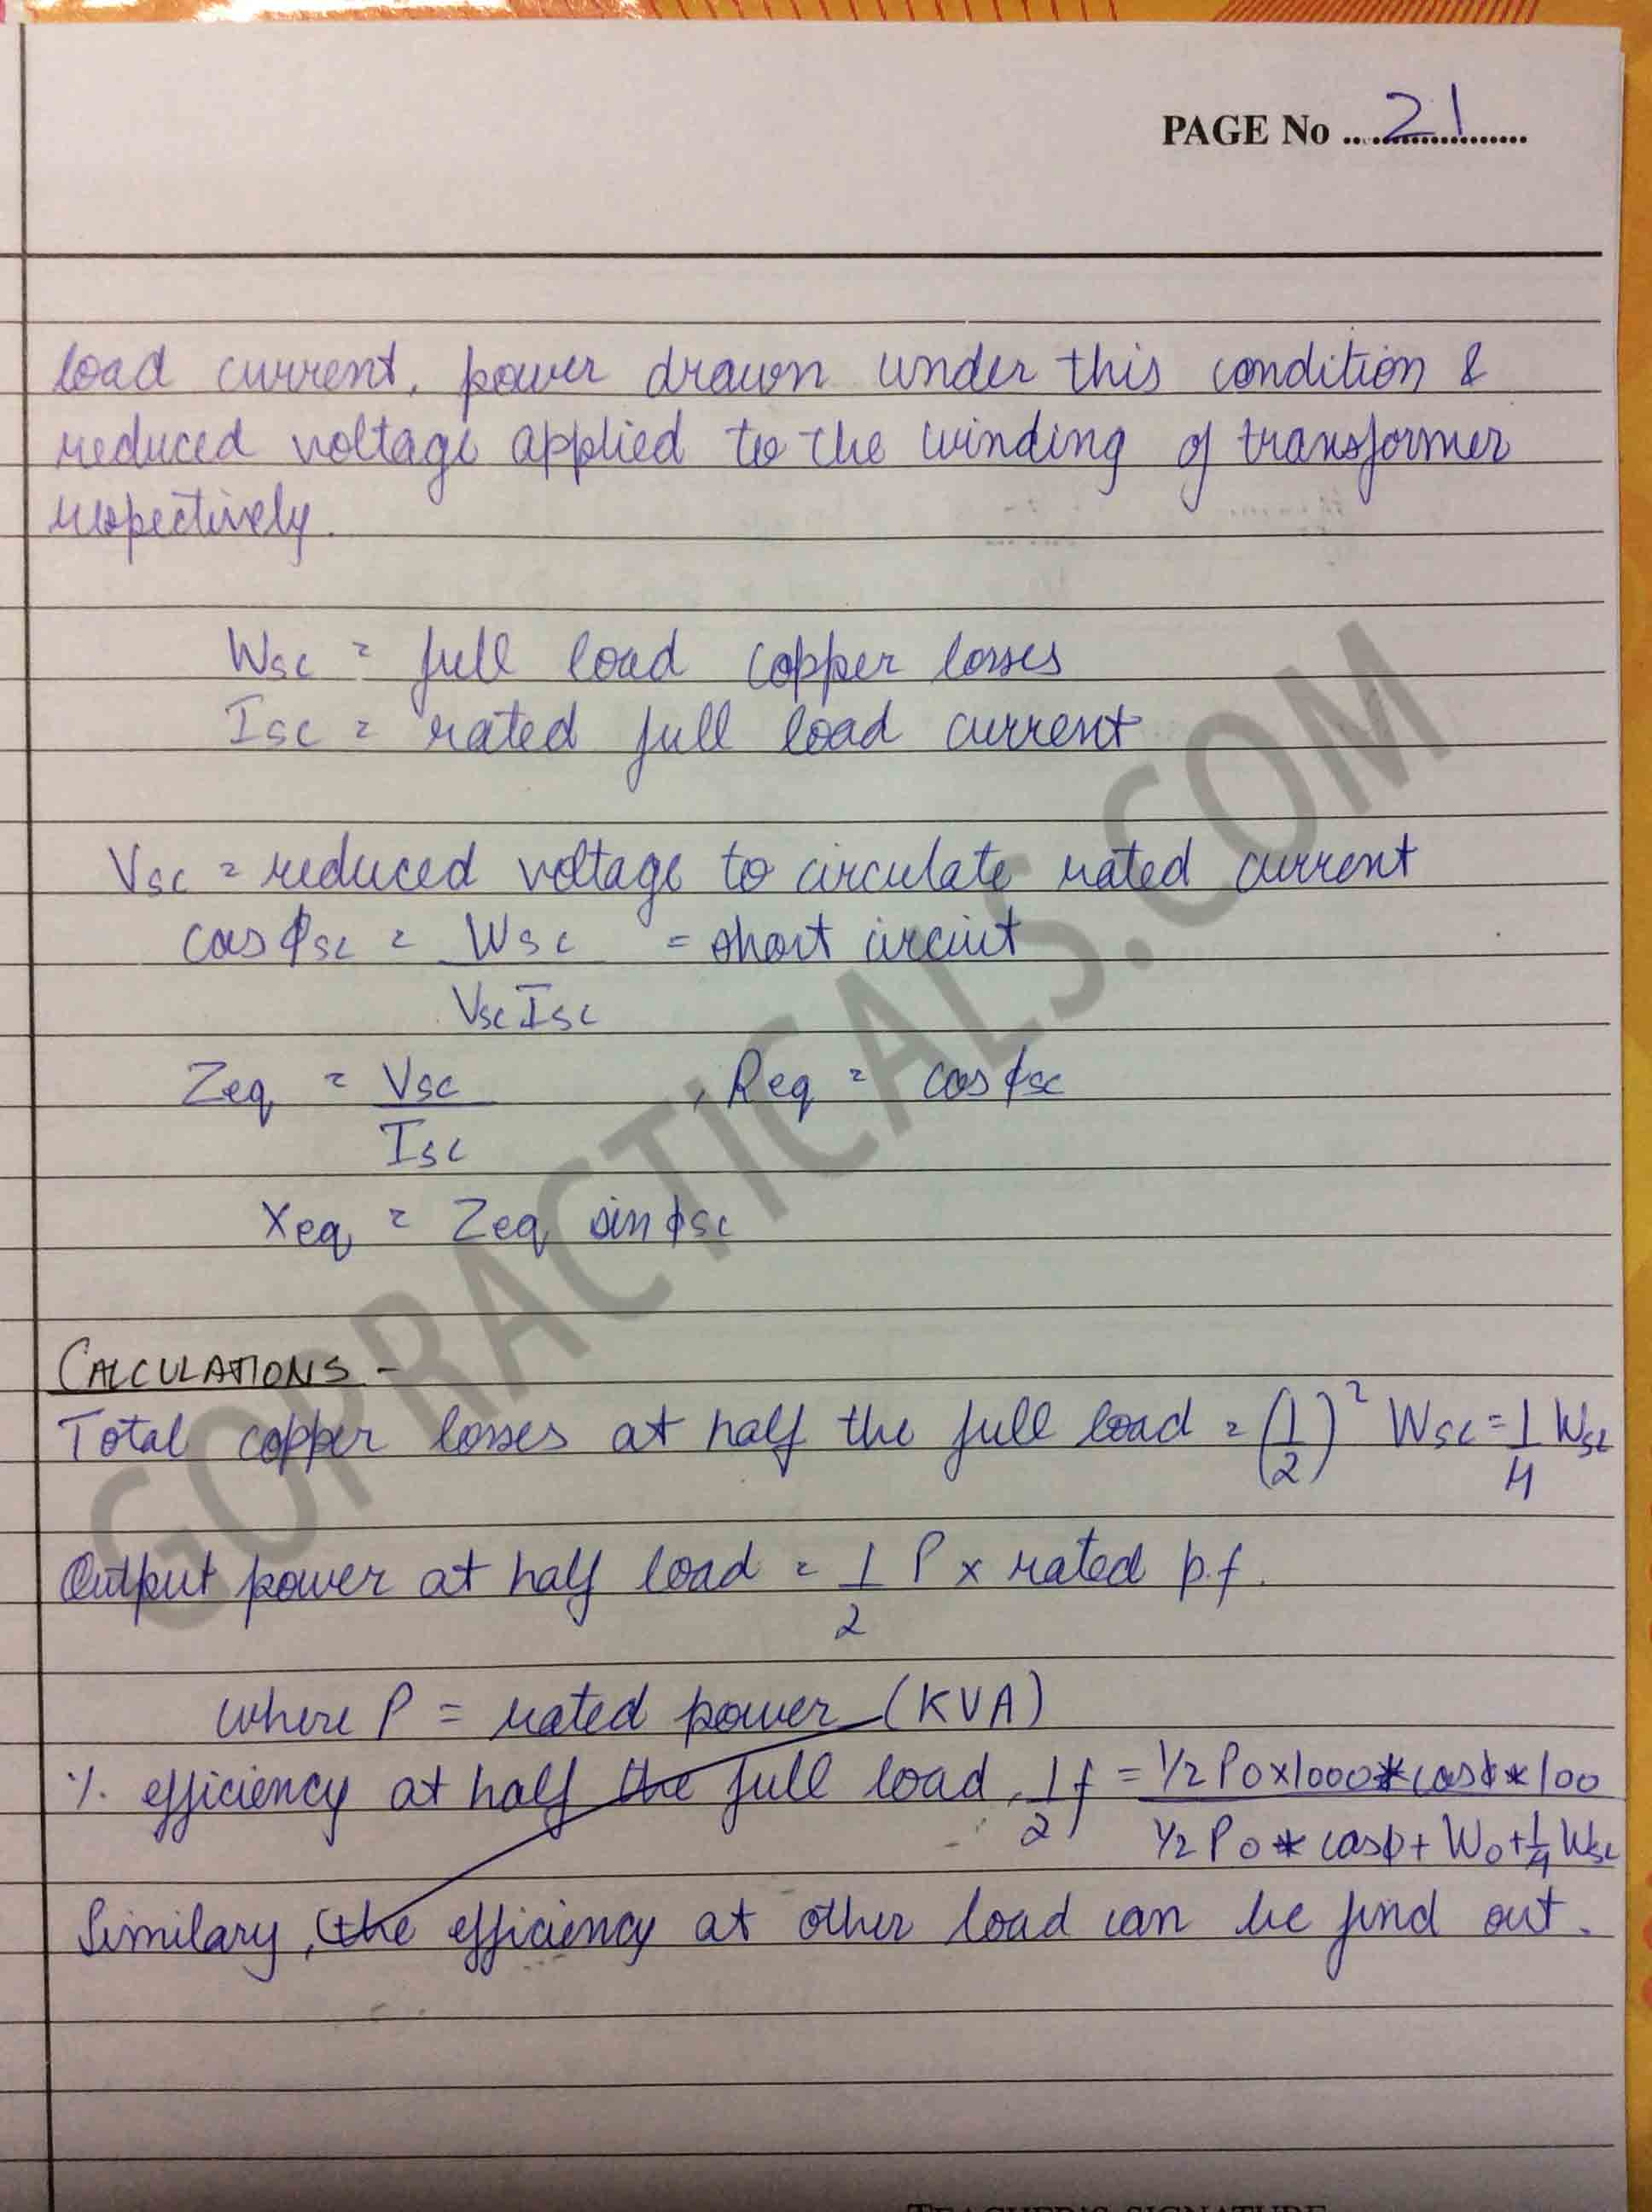 PAGE No ....21....
load current, power drawn under this condition &
reduced voltage applied to the winding of transformer
respectively.
Wsc = full load copper losses
Isc = rated full load current
Vsc = reduced voltage to circulate rated current
cos ϕsc = Wsc = short circuit
Vsc Isc
Zeq = Vsc , Req = cos ϕsc
Isc
Xeq = Zeq sin ϕsc
CALCULATIONS -
Total copper losses at half the full load = (1/2)² Wsc = 1/4 Wsc
Output power at half load = 1/2 P × rated p.f.
where P = rated power (KVA)
% efficiency at half the full load, 1/2 f = 1/2 P0 x 1000 * cosϕ * 100
1/2 P0 * cosϕ + W0 + 1/4 Wsc
Similary, (the efficiency at other load can be find out.
TEACHER'S SIGNATURE
GOPRACTICALS.COM